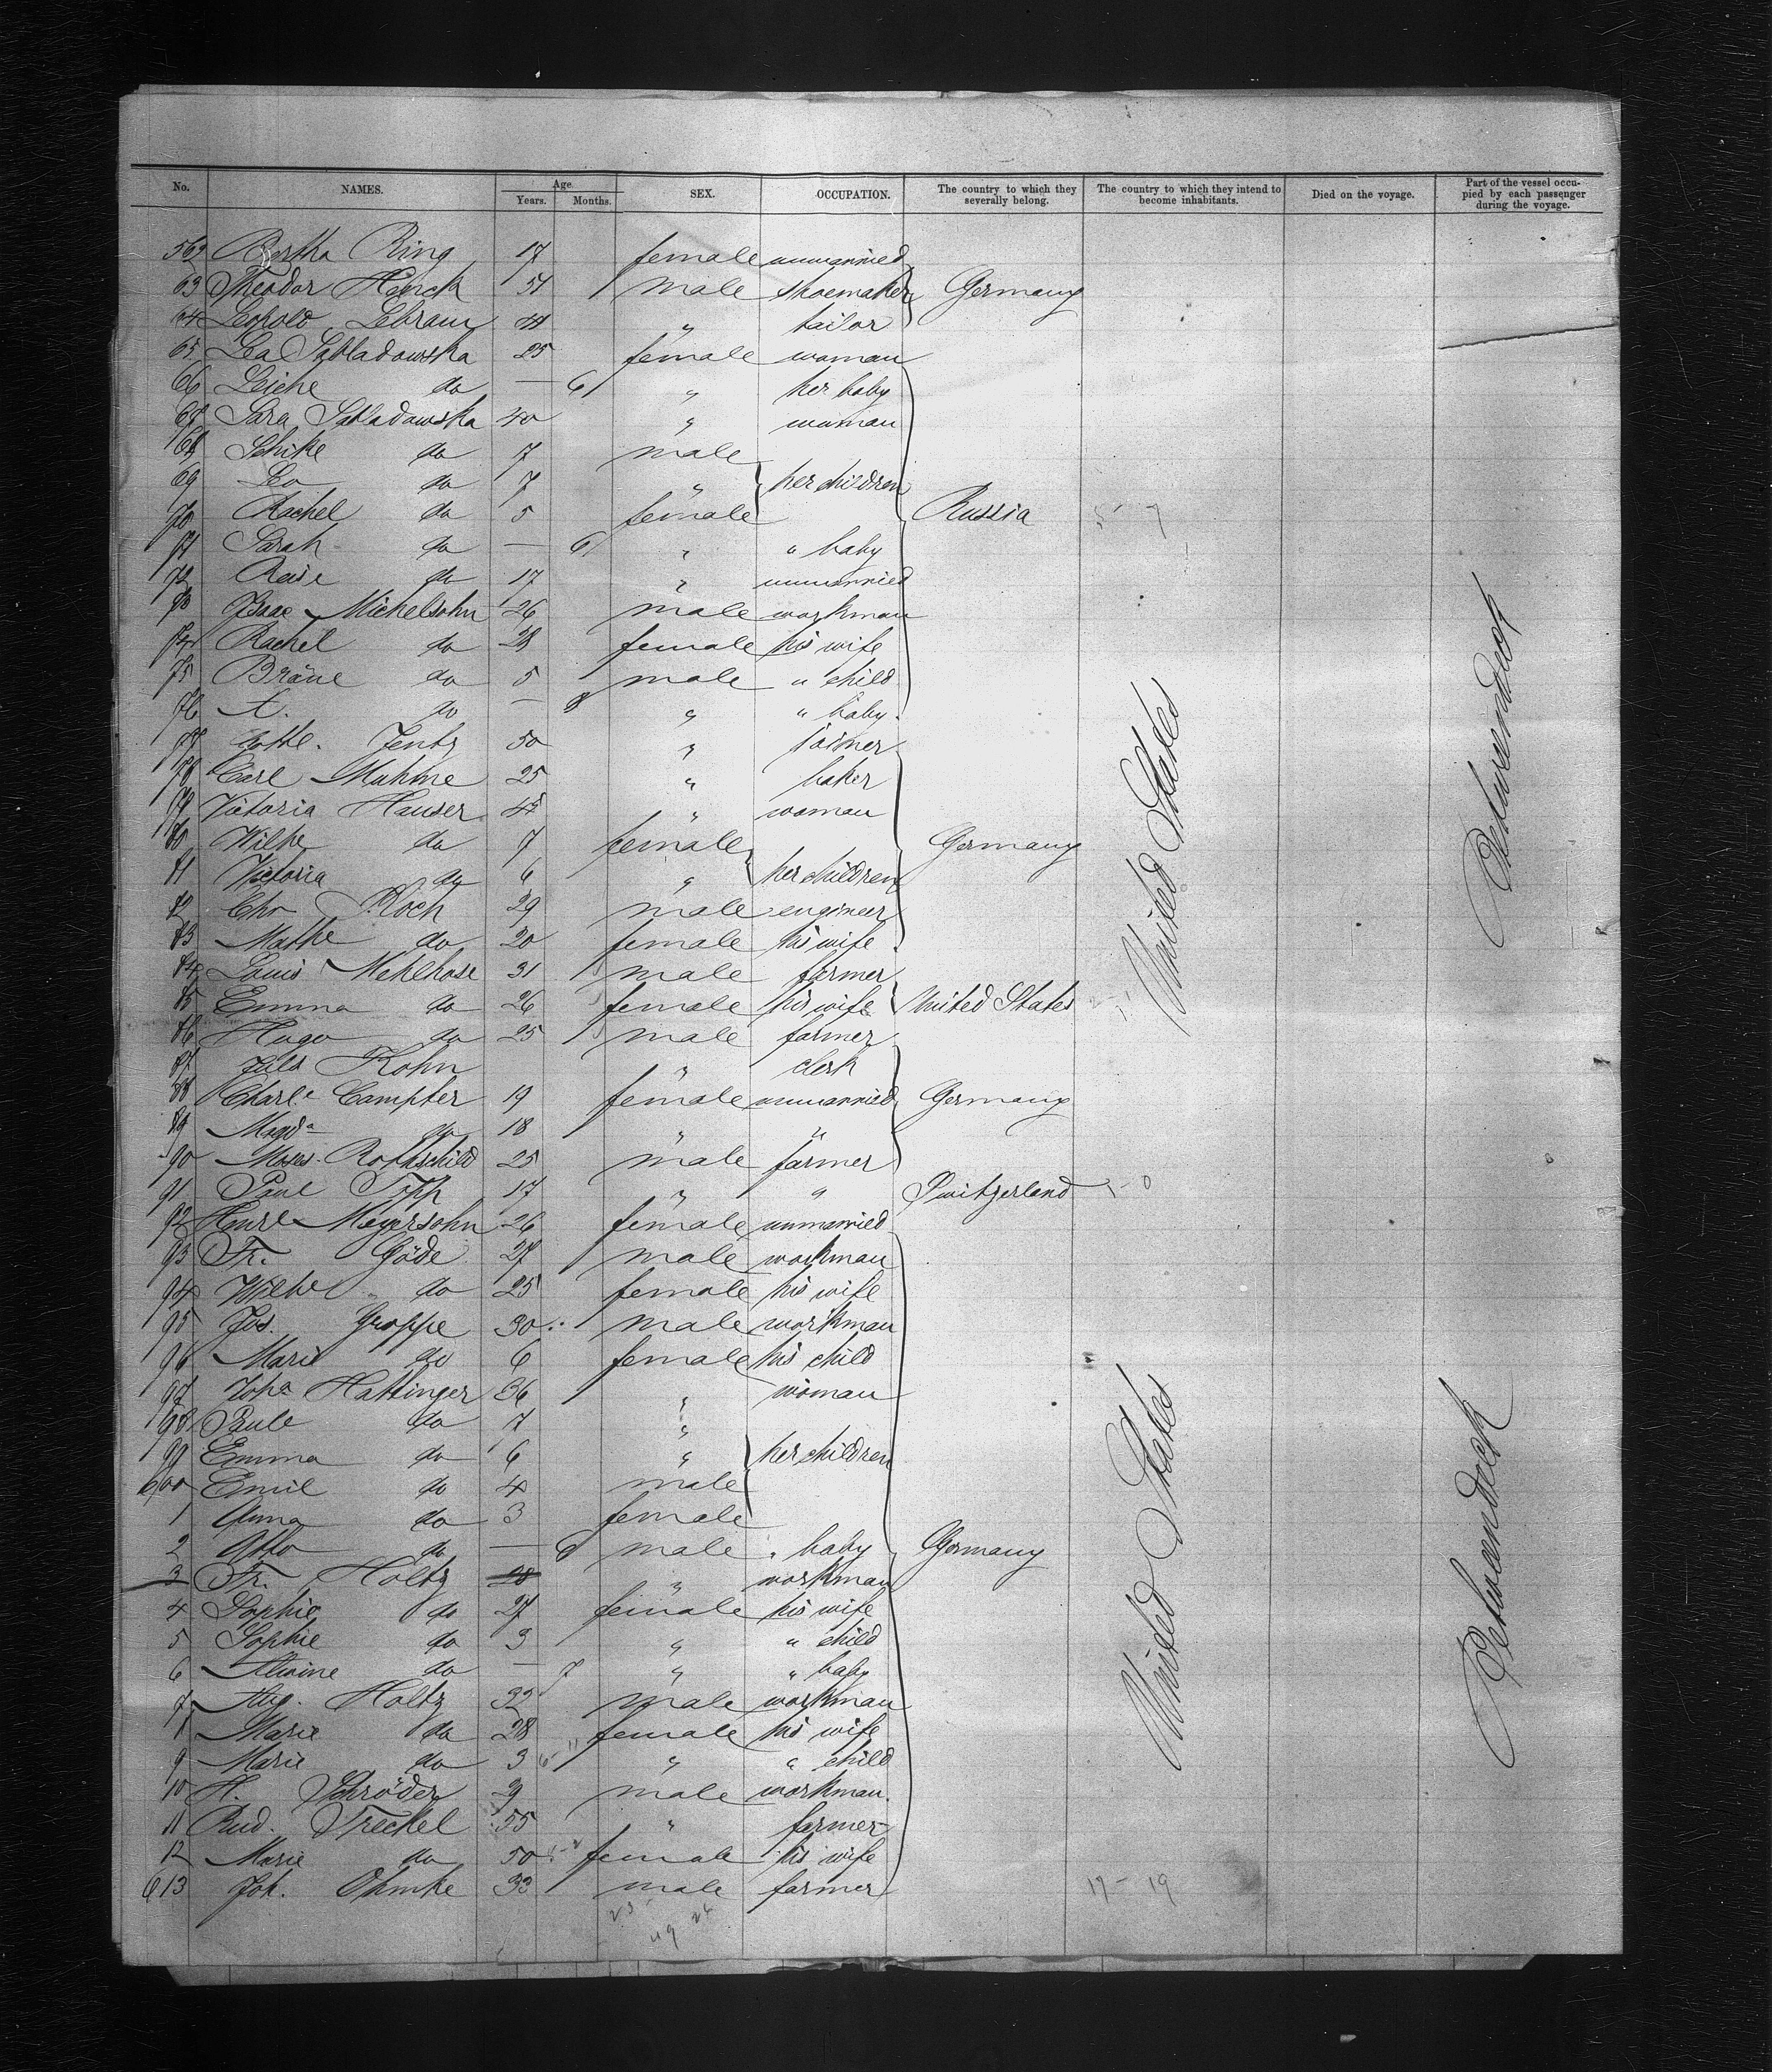 No. NAMES. Age. Years. Months. SEX. OCCUPATION. The country to which they severally belong. The country to which they intend to become inhabitants. Died on the voyage. Part of the vessel occupied by each passenger during the voyage.
562 Bertha Ring 17 female unmarried
63 Theodor 51 male shoemaker Germany
64 Leopold " tailor
65 Lea 25 female woman
66 do — 6 " her baby
67 Sara 40 " woman
68 Schike do 7 male
69 Leo do 7 " her children
70 Rachel do 5 female Russia
71 Sarah do — 6 " " baby
72 do 17 " unmarried
73 Isaac Michelsohn 26 male workman
74 Rachel do 28 female his wife
75 Bräne do 5 male " child
76 A. do — 8 " " baby
77 Gottl. Jentz 50 " joiner
78 Carl Muhme 25 " baker
79 Victoria Hauser 45 " woman
80 do 7 female Germany
81 Victoria do 6 " her children
82 Chr Koch 29 male engineer
83 Mathe do 20 female his wife
84 Louis Mehlhose 31 male farmer
85 Emma do 26 female his wife United States
86 Hugo do 25 male farmer
87 Kohn " clerk
88 Charle Campter 19 female unmarried Germany
89 Magda do 18 " "
90 Moses Rothschild 25 male farmer
91 Paul 17 " " Switzerland
92 Meyersohn 26 female unmarried
93 Fr. Göde 27 male workman
94 do 25 female his wife
95 Jos. Groppe 30 male workman
96 Marie do 6 female his child
97 Joha Hattinger 36 " woman
98 Paule do 7 "
99 Emma do 6 " her children
600 Emil do 4 male
1 Anna do 3 female
2 Otto do — 6 male " baby Germany
3 Fr. Holtz 28 " workman
4 Sophie do 27 female his wife
5 Sophie do 3 " " child
6 Alwine do — 7 " " baby
7 Aug. Holtz 32 male workman
8 Marie do 28 female his wife
9 Marie do 3 " " child
10 H. Schröder 29 male workman
11 Rud. Treckel 55 " farmer
12 Marie do 50 female his wife
613 Joh. Ohmke 33 male farmer 17 - 19
23 24
49
United States
United States
Betweendeck
Betweendeck